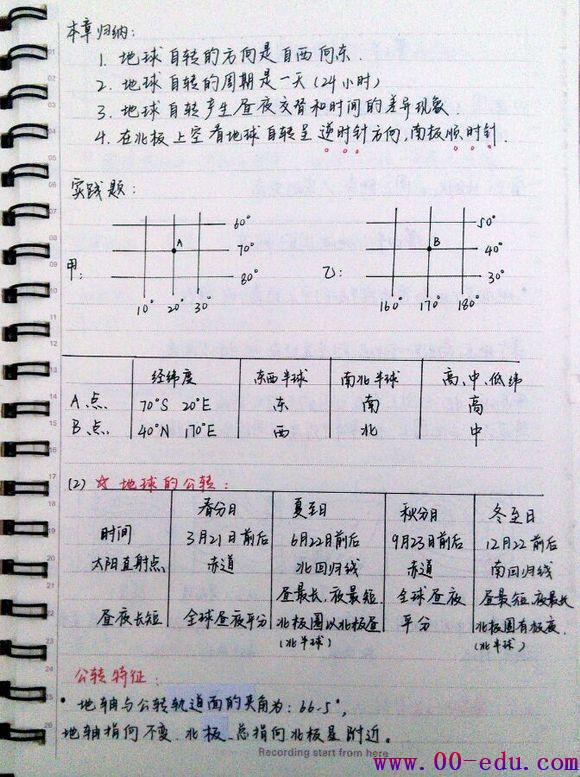 本章归纳:
1. 地球自转的方向是自西向东.
2. 地球自转的周期是一天(24小时)
3. 地球自转产生昼夜交替和时间的差异现象.
4. 在北极上空看地球自转呈逆时针方向,南极顺时针.
实践题:
60° 50°
A B
甲: 70° 乙: 40°
80° 30°
10° 20° 30° 160° 170° 180°
经纬度 东西半球 南北半球 高、中、低纬
A.点 70°S 20°E 东 南 高
B.点 40°N 170°E 西 北 中
(2) ☆ 地球的公转:
春分日 夏至日 秋分日 冬至日
时间 3月21日前后 6月22日前后 9月23日前后 12月22前后
太阳直射点 赤道 北回归线 赤道 南回归线
昼最长.夜最短. 全球昼夜 昼最短.夜最长
昼夜长短 全球昼夜平分 北极圈以北极昼 平分 北极圈有极夜.
(北半球) (北半球)
公转特征:
• 地轴与公转轨道面的夹角为:66.5°,
地轴指向不变.北极总指向北极星附近。
Recording start from here
www.00-edu.com